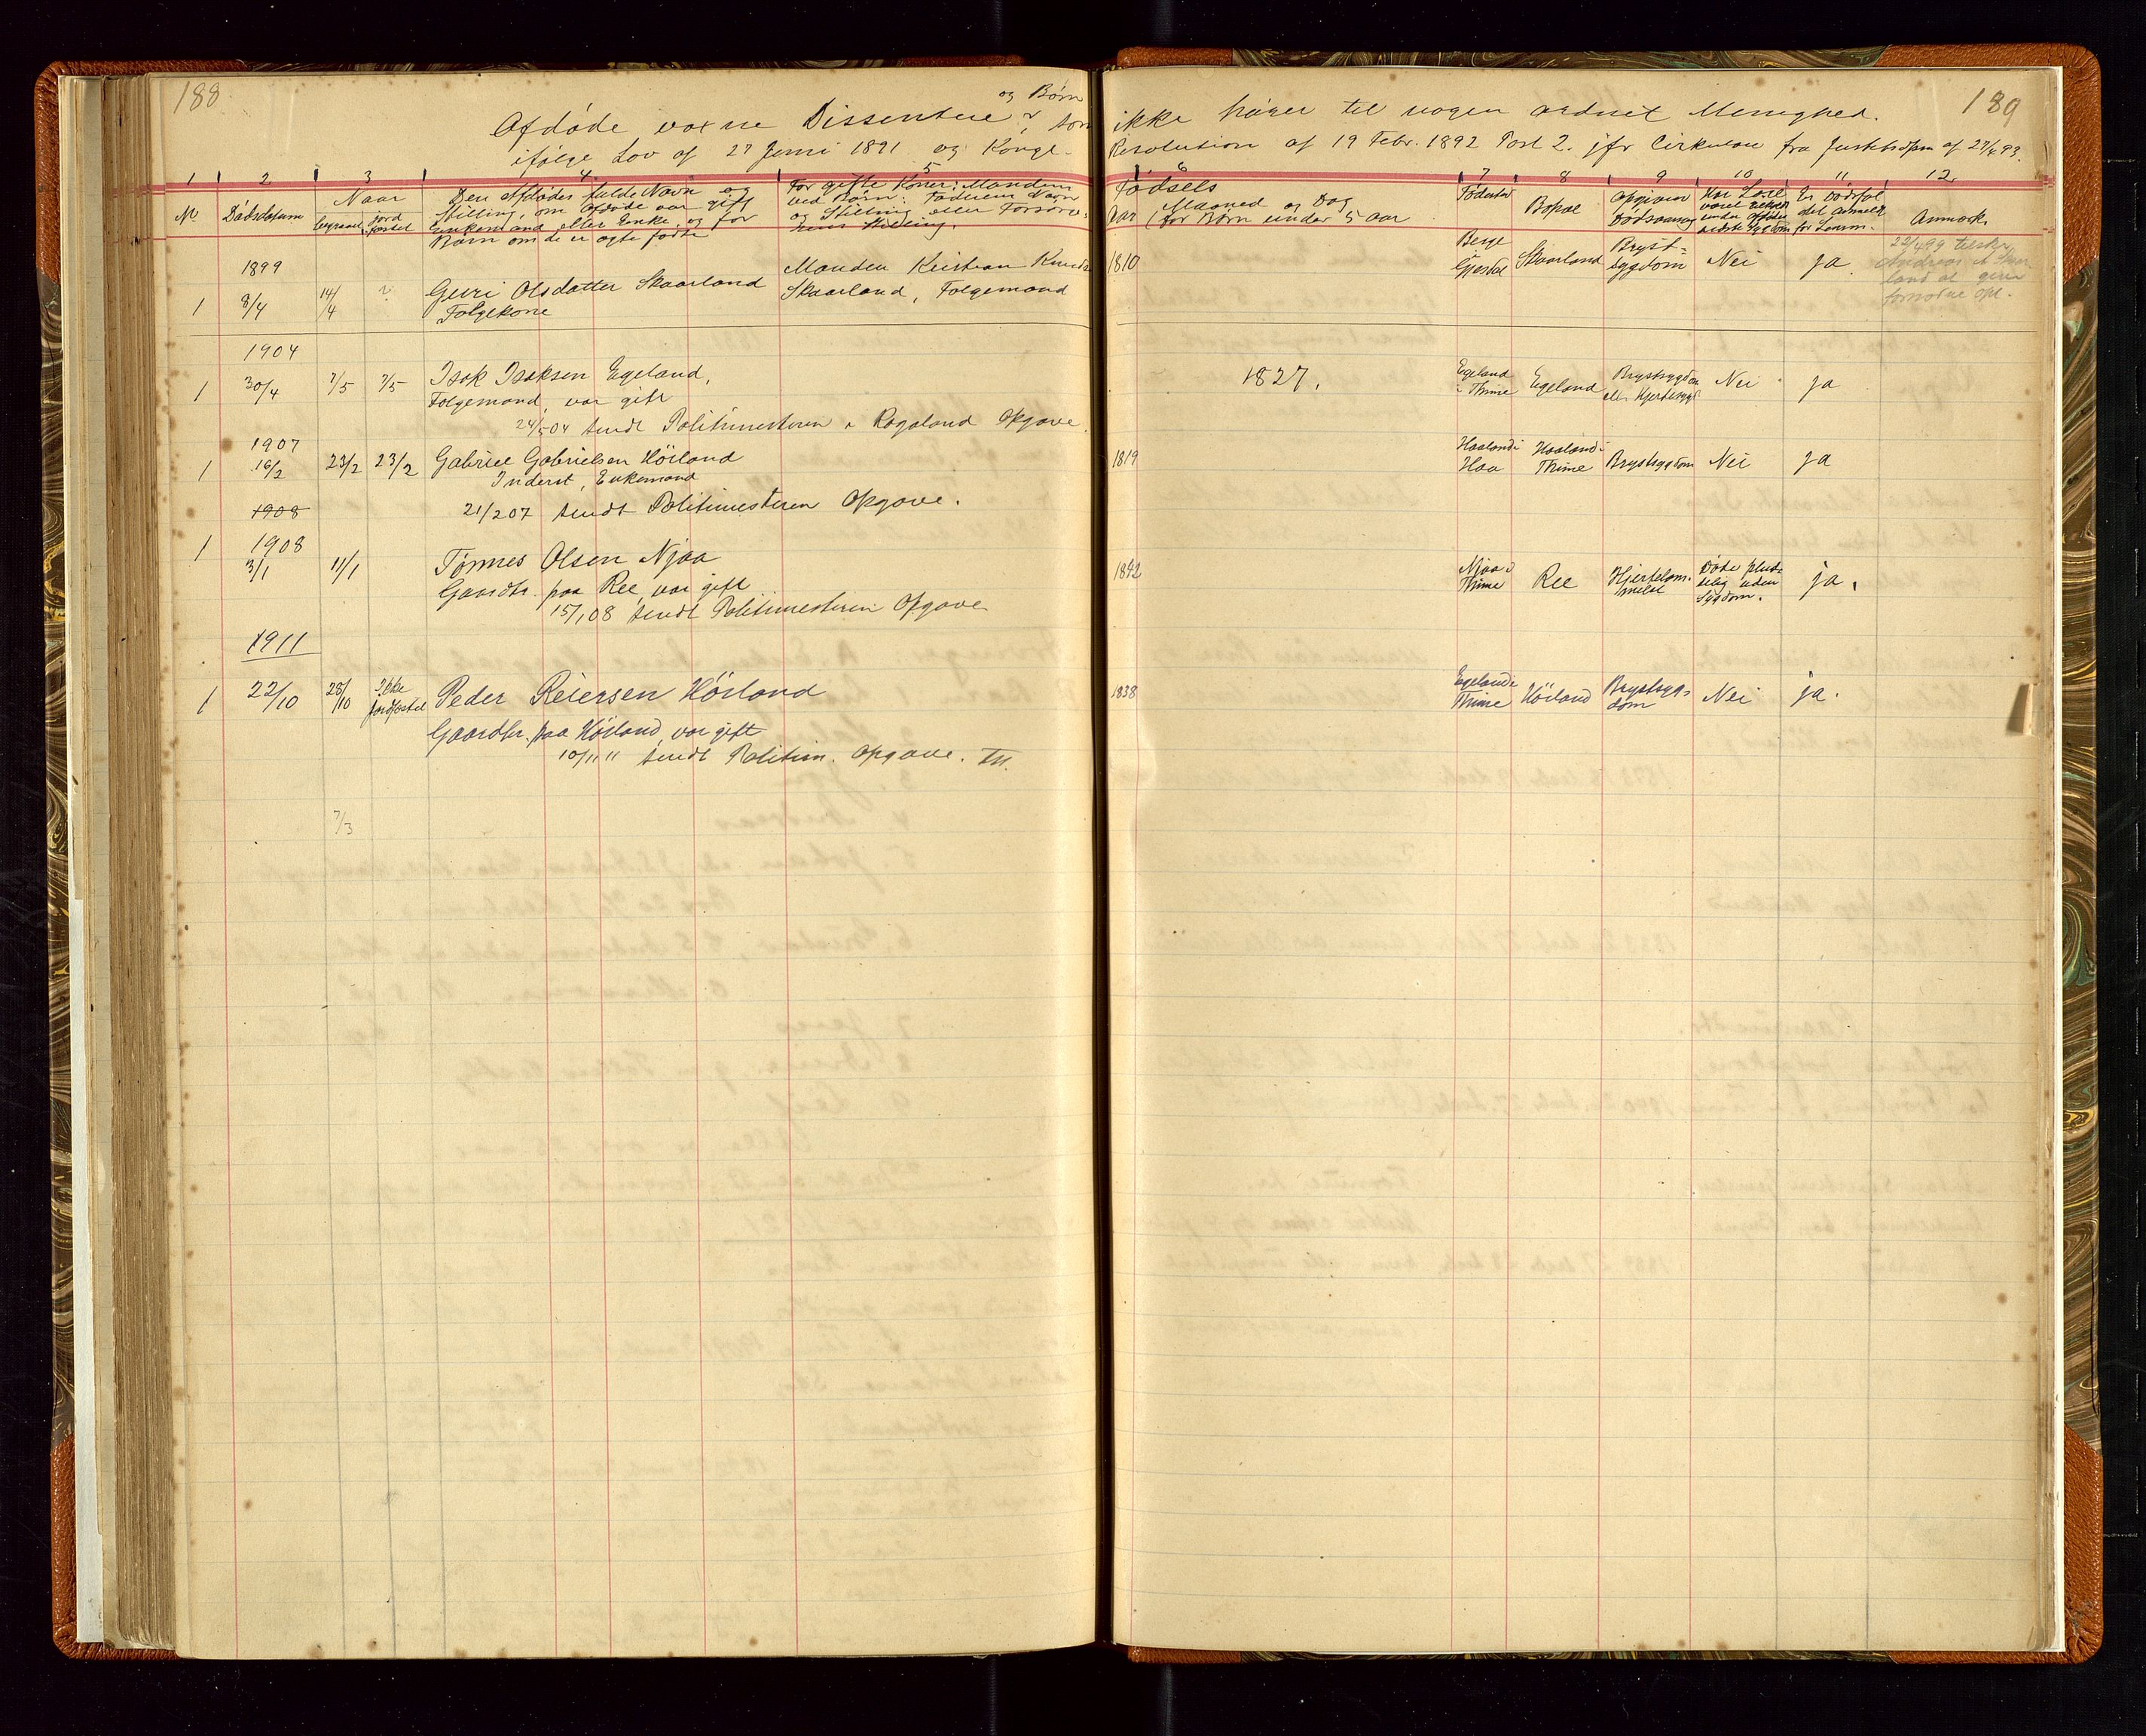 188
189
og Børn
Afdøde voxne Dissentere, som ikke hører til nogen ordnet Menighed.
ifølge Lov af 27 Juni 1891 og Kongl. Resolution af 19 Febr. 1892 Post 2. jfr Cirkulære fra Justitsdepm af 27/4 93.
1 2 3 4 5 6 7 8 9 10 11 12.
No
Dødsdatum
Naar
begravet
Jord fæstet
Den Afdødes fulde Navn og
Stilling, om Afdøde var gift
Enkemand eller Enke, og for
Børn om de er ægte fødte
For gifte Koner: Mandens
ved Børn: Faderens Navn
og Stilling eller Forsør-
gerens Stilling.
Fødsels
Aar
Maaned og Dag
(for Børn under 5 Aar
Fødested
Bopæl
Opgiven
Dødsaarsag
Har Læge
været
under
sidste Sygdom
Er Dødsfal
det anmeldt
for Lensm.
Anmærk.
1899
1 8/4 14/4 ? Guri Olsdatter Skaarland
Folgekone
Manden Kristian Knuds
Skaarland, Folgemand
1810
Berge
Gjesdal
Skaarland
Bryst-
sygdom
Nei
ja.
22/4 99 tilskr.
Andreas
land at give
fornødne Opl.
1904
1 30/4 7/5 7/5 Isak Isaksen Egeland,
Folgemand, var gift
1827.
Egeland
i Thime
Egeland
Brystsygdom
ell. Hjertesygd
Nei
ja
24/5 04 sendt Politimesteren i Rogaland Opgave.
1907
1 16/2 23/2 23/2 Gabriel Gabrielsen Hörland
Inderst, Enkemand
1819
Haaland i
Haa
Haaland i
Thime
Brystsygdom
Nei
ja
21/2 07 sendt Politimesteren Opgave.
1908
1908
1 3/1 11/1 Tønnes Olsen Njaa
Gaardbr. paa Ree, var gift
1842
Njaa i
Thime
Ree
Hjertelam-
melse
Døde pluds-
selig uden
Sygdom.
ja.
15/1 08 sendt Politimesteren Opgave
1911
1 22/10 28/10 Ikke
jordfæstet
Peder Reiersen Hörland
Gaardbr. paa Hörland, var gift
1838
Egeland i
Thime
Hörland
Brystsyg-
dom
Nei
ja.
10/11 11 sendt Politim. Opgave.
7/3